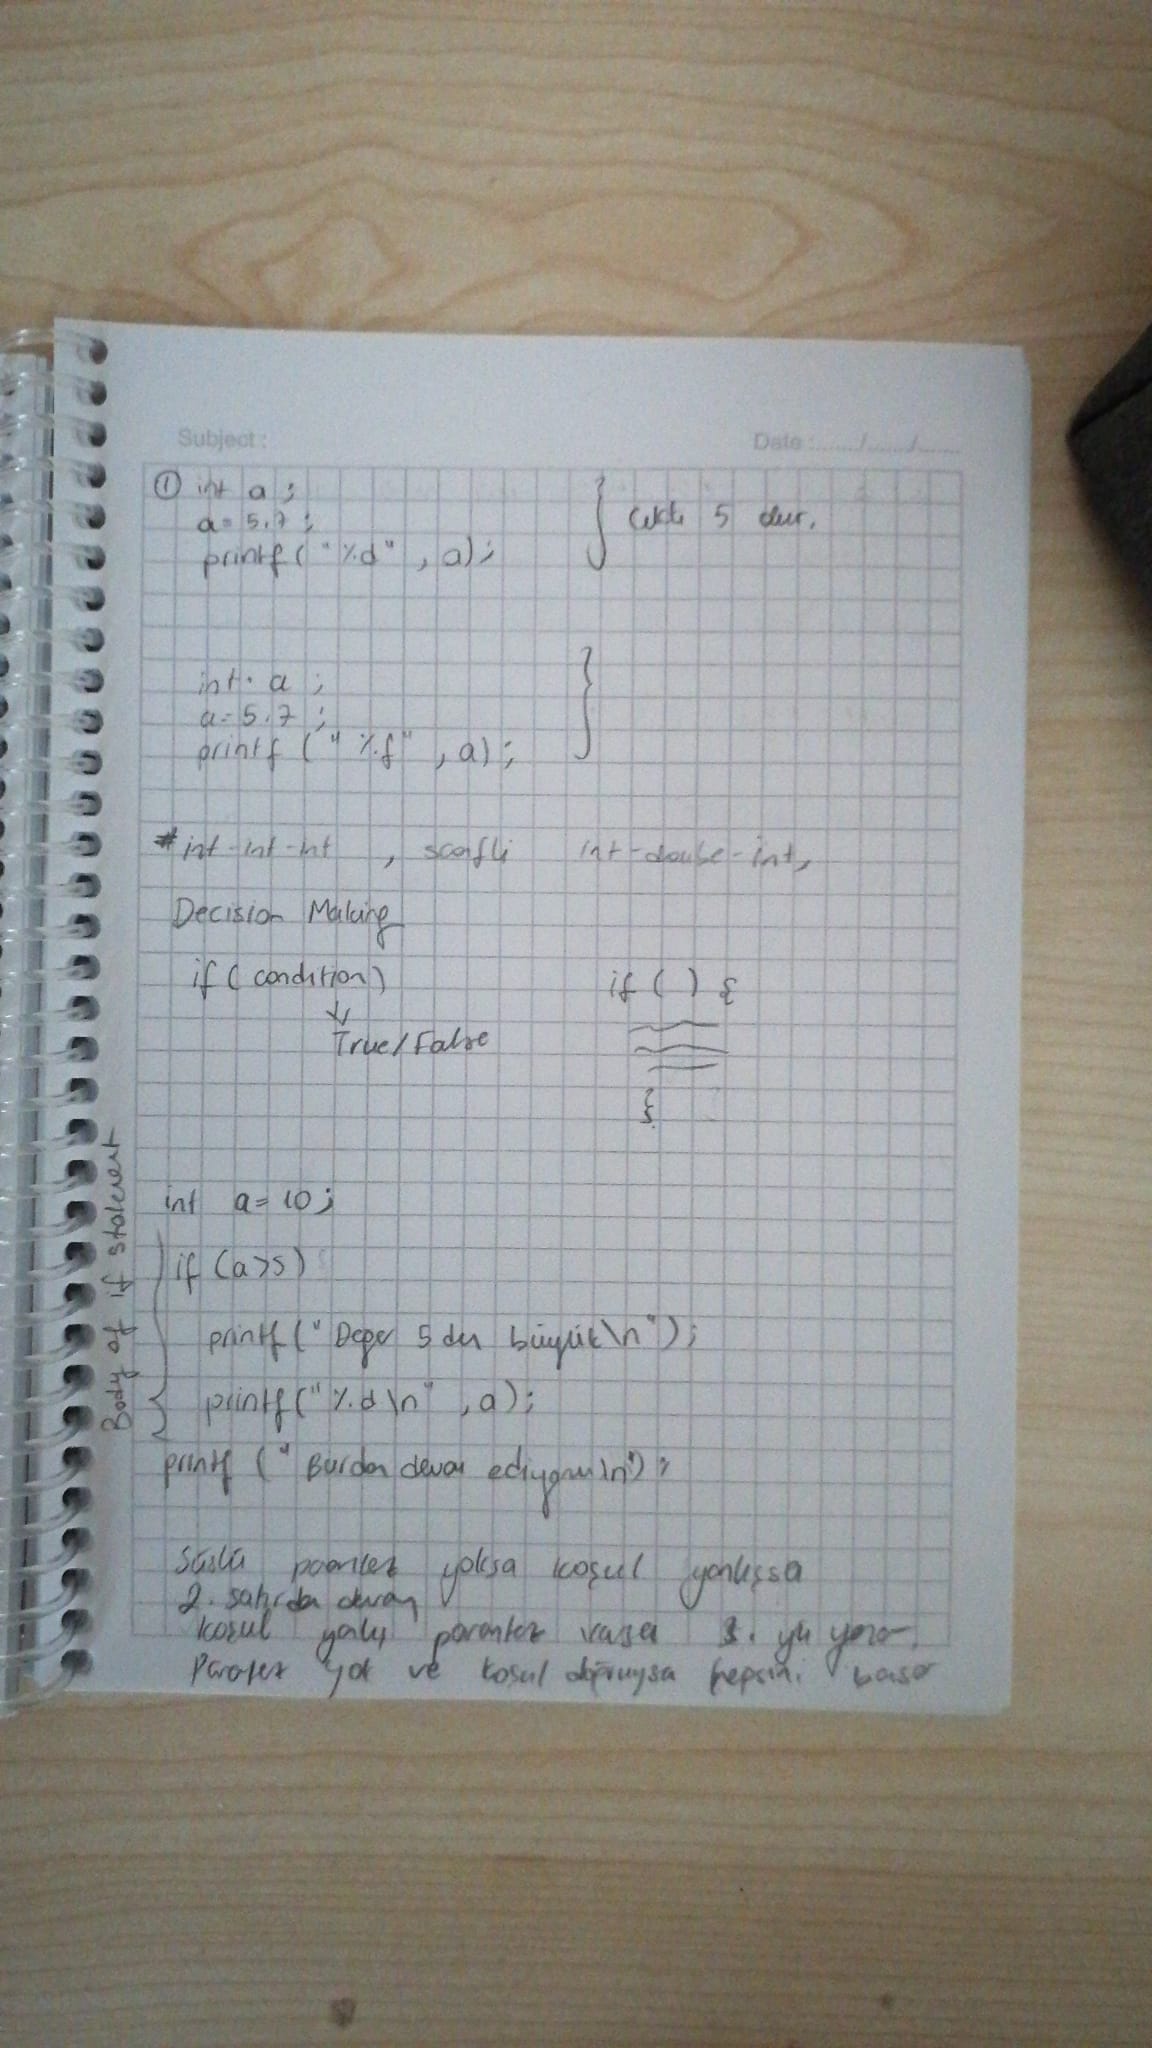 Subject : Date : ....../....../......
① int a ;
a = 5.7 ;
printf ( "%d" , a) ;
Çıktı 5 dur.
int a ;
a = 5.7 ;
printf ( " %f" , a) ;
* int - int - int , int - double - int,
Decision Making
if ( condition )
↓
True / False
if ( ) {
}
int a = 10 ;
Body of if
if (a>5)
printf ( " Değer 5 den büyük \n" ) ;
printf ( " %d \n" , a) ;
printf ( " Burdan devam ediyorum \n") ;
Süslü parantez yoksa koşul yanlışsa
2. satırdan devam
koşul yanlış parantez varsa 3. yü yazar.
Parantez yok ve koşul doğruysa hepsini basar